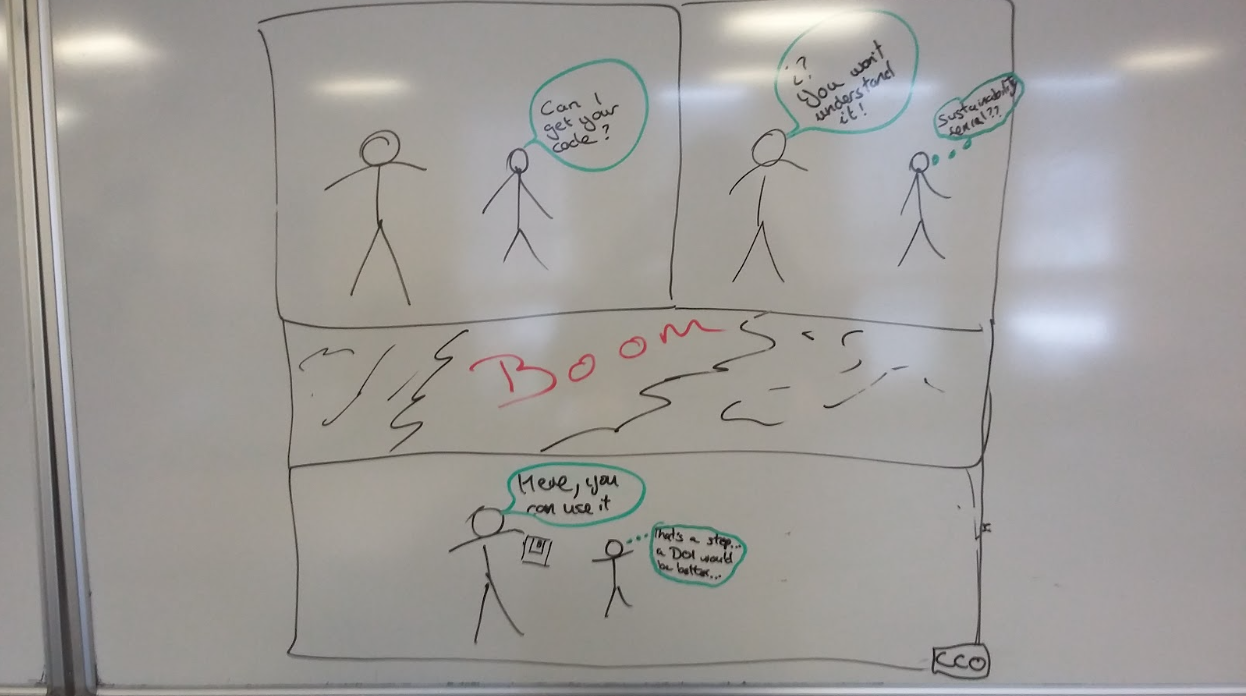 Can I
get your
code?
¿?
You won't
understand
it!
Sustainability
BOOM
Here, you
can use it
That's a step...
a DOI would
be better...
CC0